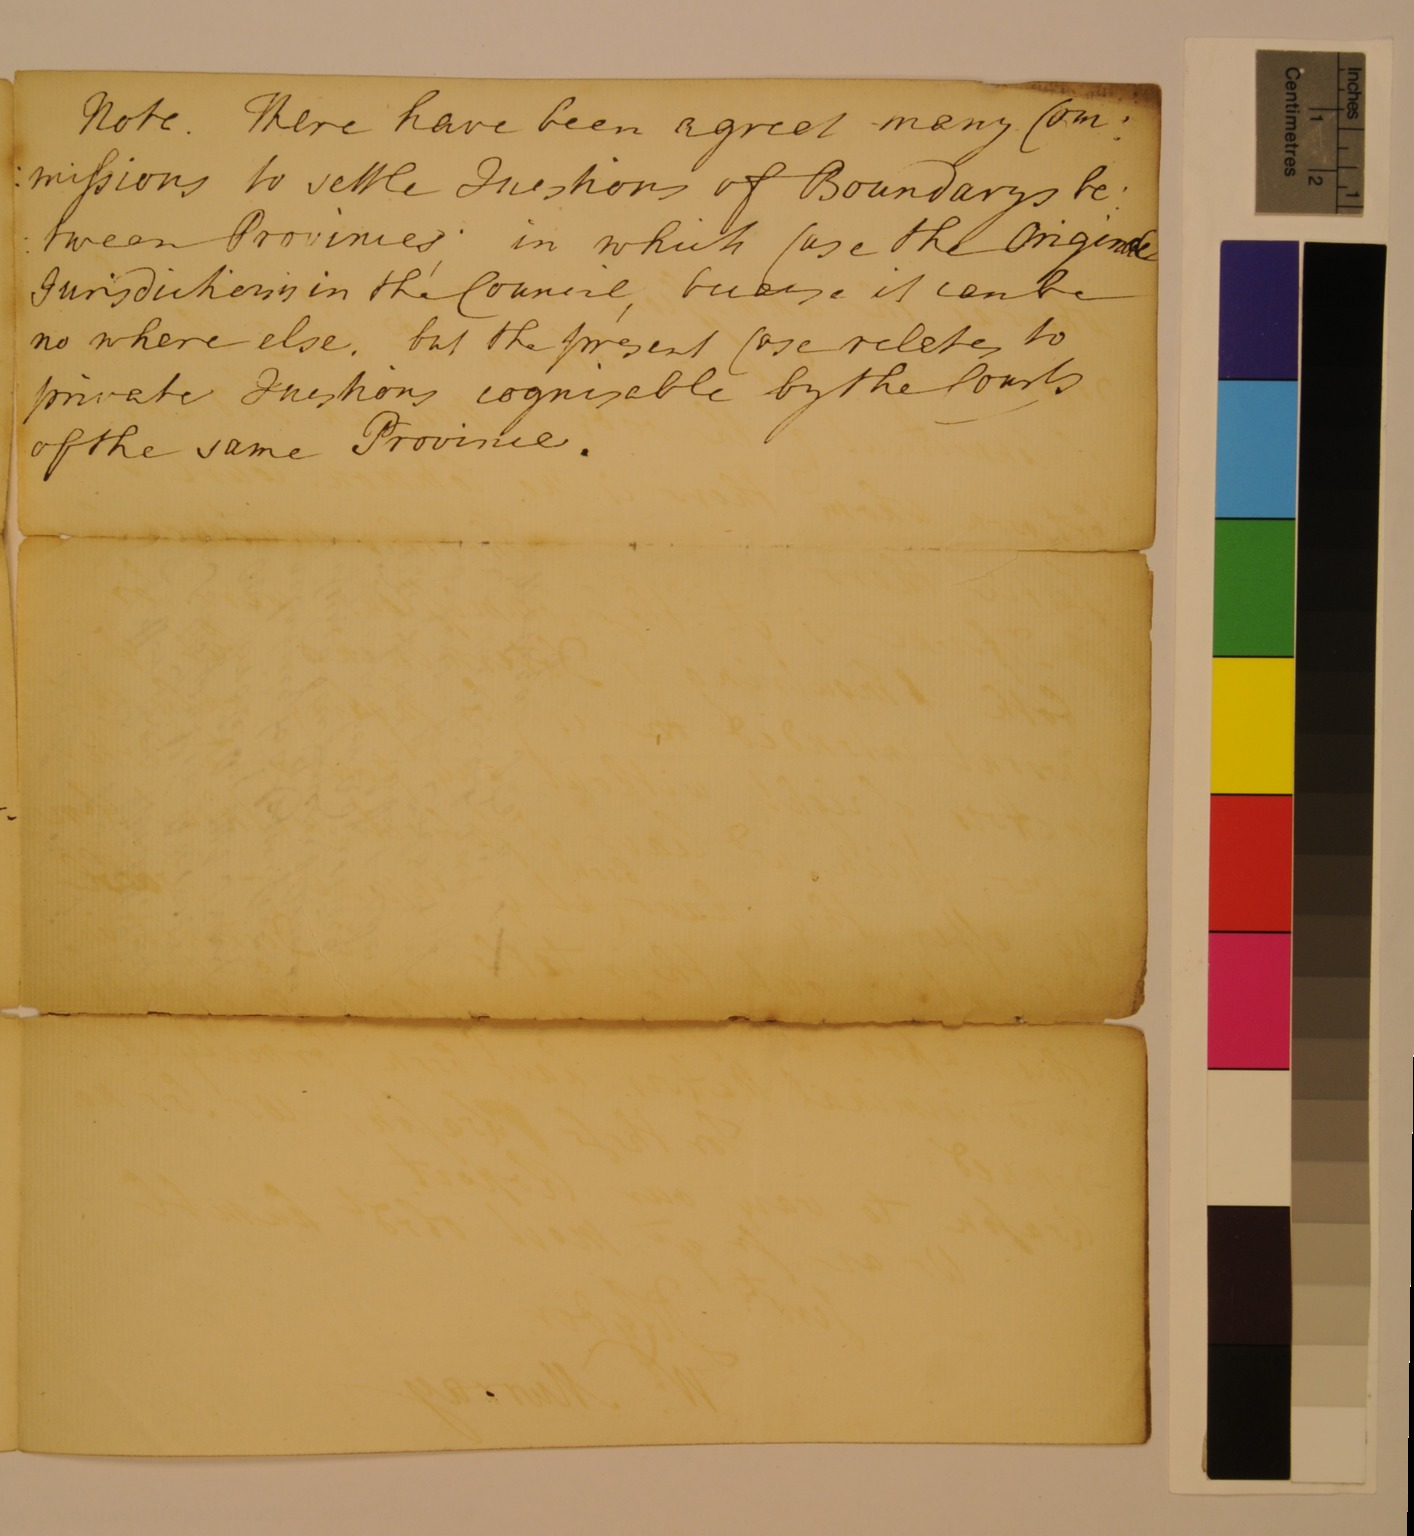 Note. There have been agreet many Com:
:missions to settle Questions of Boundarys be:
:tween Provinces; in which Case the Original
Jurisdiction is in the Council, because it can be
no where else. but the present Case relates to
private Questions cognisable by the Courts
of the same Province.
Inches
1
Centimetres
1 2